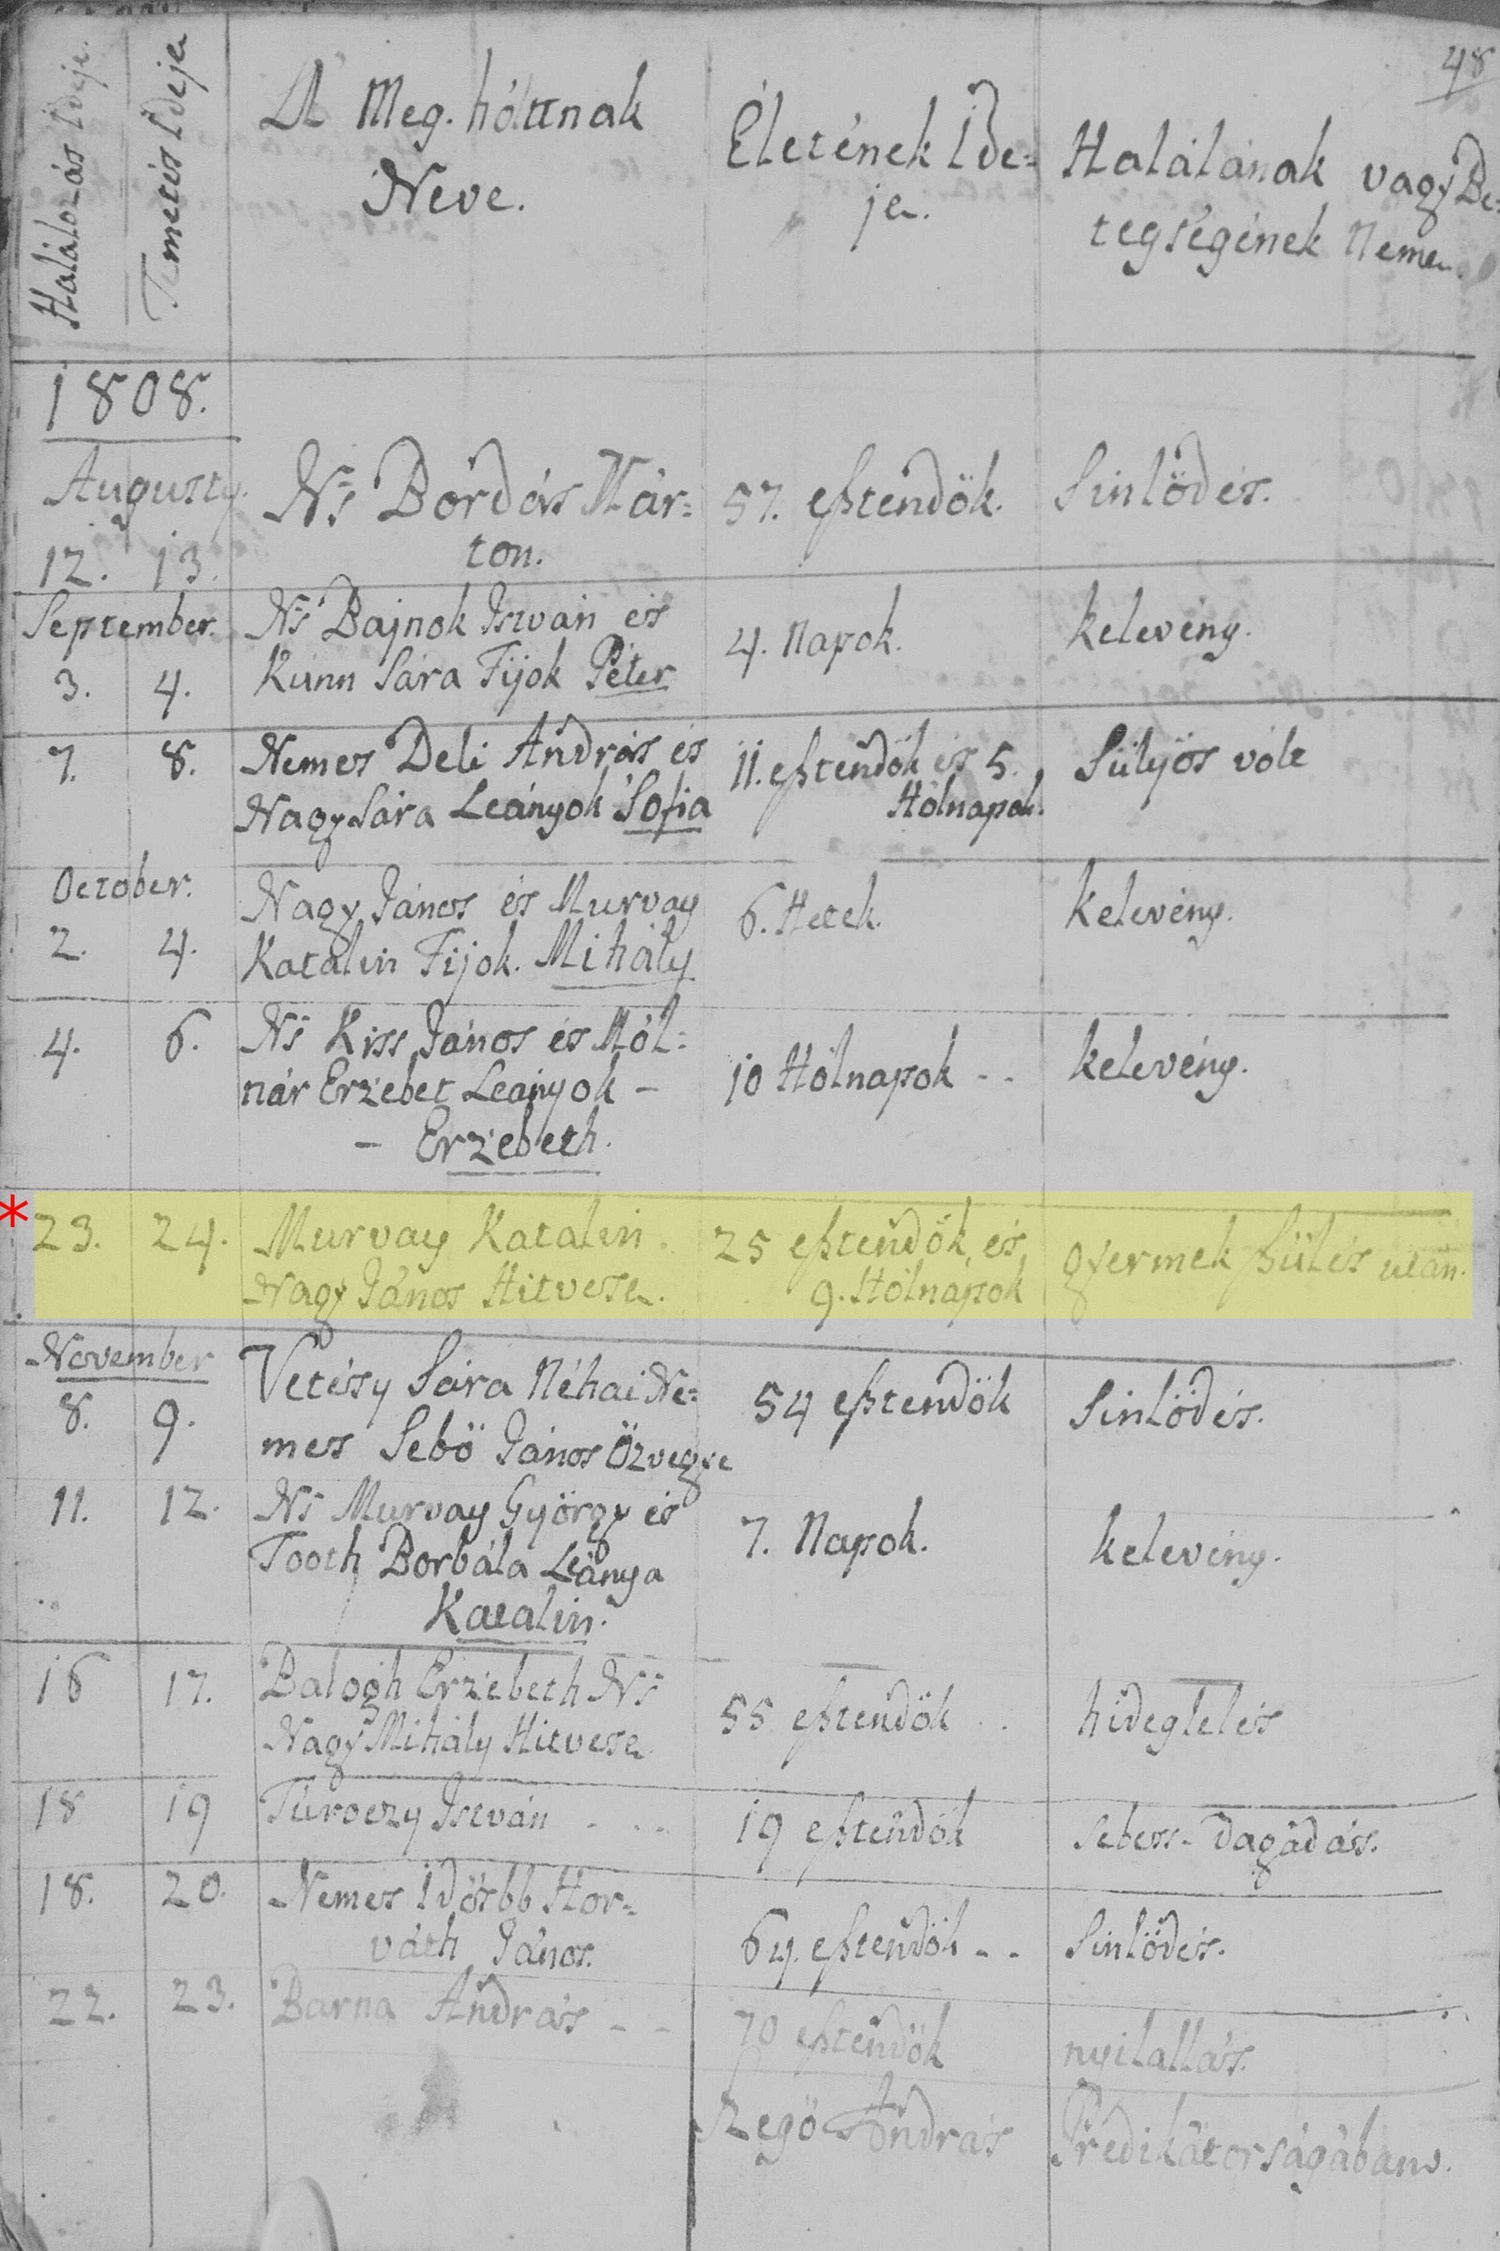 48
Halálozás Ideje.
Temetés Ideje
A Meg. hólttnak
Neve.
Életének Ide=
je.
Halálának vagy Be=
tegségének Neme.
1808.
Augusty.
12. 13.
Ns Bordás Már=
ton.
57. eſztendök.
Sinlödés.
September.
3. 4.
Ns Bajnok Istvan és
Kúnn Sára Fijok Péter
4. Napok.
kelevény.
7. 8.
Nemes Deli András és
Nagy Sára Leányok Sofia
11. eſztendök és 5.
Hólnapok.
Sülyös vólt
October.
2. 4.
Nagy János és Murvay
Katalin Fijok. Mihály
6. Hetek.
kelevény.
4. 6.
Ns Kiss János és Mól=
nár Erzebet Leányok –
– Erzebeth.
10 Hólnapok - -
kelevény.
* 23. 24.
Murvay Katalin
Nagy János Hitvese.
25 eſztendök és
9. Hólnapok
gyermek ſzülés után.
November
8. 9.
Vetésy Sára Néhai Ne=
mes Sebö János Özvegye
54 eſztendök
Sinlödés.
11. 12.
Ns Murvay György és
Tooth Borbála Leánya
Katalin.
7. Napok.
kelevény.
16 17.
Balogh Erzebeth Ns
Nagy Mihály Hitvese
55 eſztendök . .
hideglelés
18 19
Túroczy István . . .
19 eſztendök
sebess-dagadás.
18. 20.
Nemes Idösbb Hor=
váth János.
64. eſztendök - -
Sinlödés.
22. 23.
Barna András - -
70 eſztendök
nyilallás.
Szegö András Prédikátorságában.